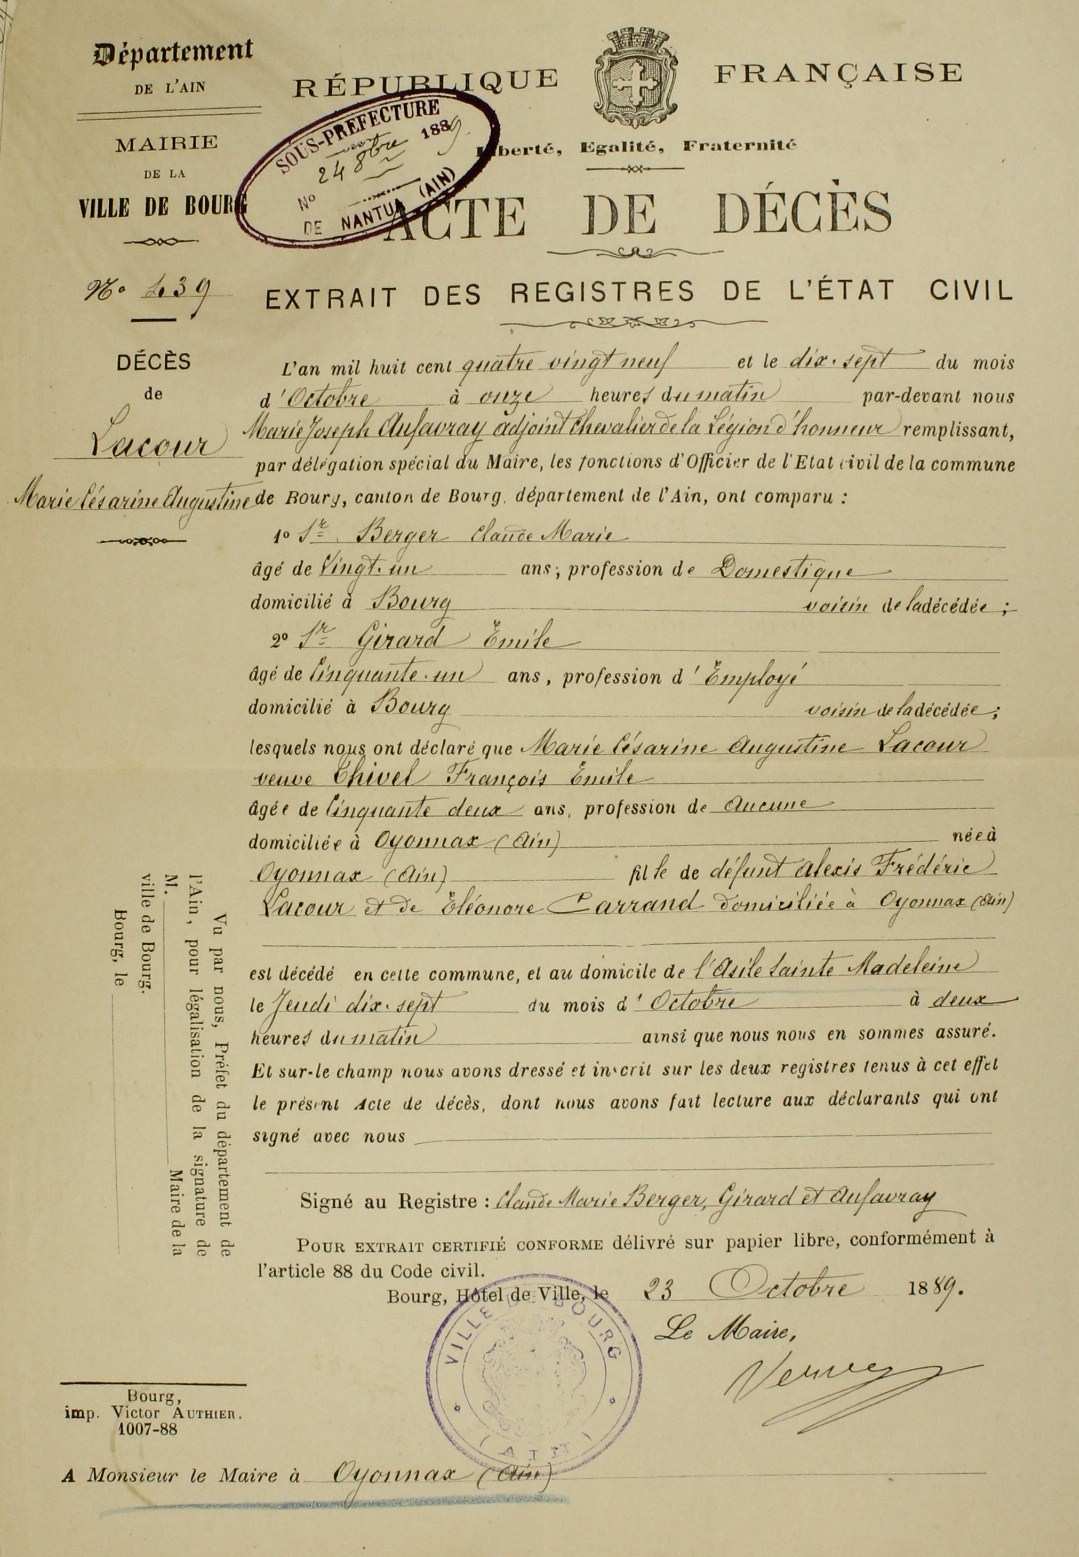 Département
DE L'AIN
MAIRIE
DE LA
VILLE DE BOURG
N° 439
DÉCÈS
de
Lacour
Marie Césarine Augustine
RÉPUBLIQUE FRANÇAISE
Liberté, Egalité, Fraternité
SOUS-PREFECTURE
24 8bre 1889.
N°
DE NANTUA (AIN)
ACTE DE DÉCÈS
EXTRAIT DES REGISTRES DE L'ÉTAT CIVIL
L'an mil huit cent quatre vingt neuf et le dix-sept du mois
d'Octobre à onze heures du matin par-devant nous
Marie Joseph Aufavray adjoint Chevalier de la Légion d'honneur remplissant,
par délégation spécial du Maire, les fonctions d'Officier de l'Etat civil de la commune
de Bourg, canton de Bourg, département de l'Ain, ont comparu :
1° Sr Berger Claude Marie
âgé de Vingt-un ans; profession de Domestique
domicilié à Bourg voisin de la décédée;
2° Sr Girard Emile
âgé de Cinquante-un ans, profession d'Employé
domicilié à Bourg voisin de la décédée;
lesquels nous ont déclaré que Marie Césarine Augustine Lacour
veuve Chivel François Emile
âgée de Cinquante deux ans, profession de Aucune
domiciliée à Oyonnax (Ain) née à
Oyonnax (Ain) fille de défunt Alexis Frédéric
Lacour et de Eléonore Carrand domiciliée à Oyonnax (Ain)
est décédé en cette commune, et au domicile de l'Asile Sainte Madeleine
le Jeudi dix-sept du mois d'Octobre à deux
heures du matin ainsi que nous nous en sommes assuré.
Et sur-le champ nous avons dressé et inscrit sur les deux registres tenus à cet effet
le présent Acte de décès, dont nous avons fait lecture aux déclarants qui ont
signé avec nous
Signé au Registre : Claude Marie Berger, Girard et Aufavray
POUR EXTRAIT CERTIFIÉ CONFORME délivré sur papier libre, conformément à
l'article 88 du Code civil.
Bourg, Hôtel de Ville, le 23 Octobre 1889.
Le Maire,
VILLE DE BOURG
(AIN)
Vu par nous, Préfet du département de
l'Ain, pour légalisation de la signature de
M. Maire de la
ville de Bourg.
Bourg, le
Bourg,
imp. Victor AUTHIER.
1007-88
A Monsieur le Maire à Oyonnax (Ain)